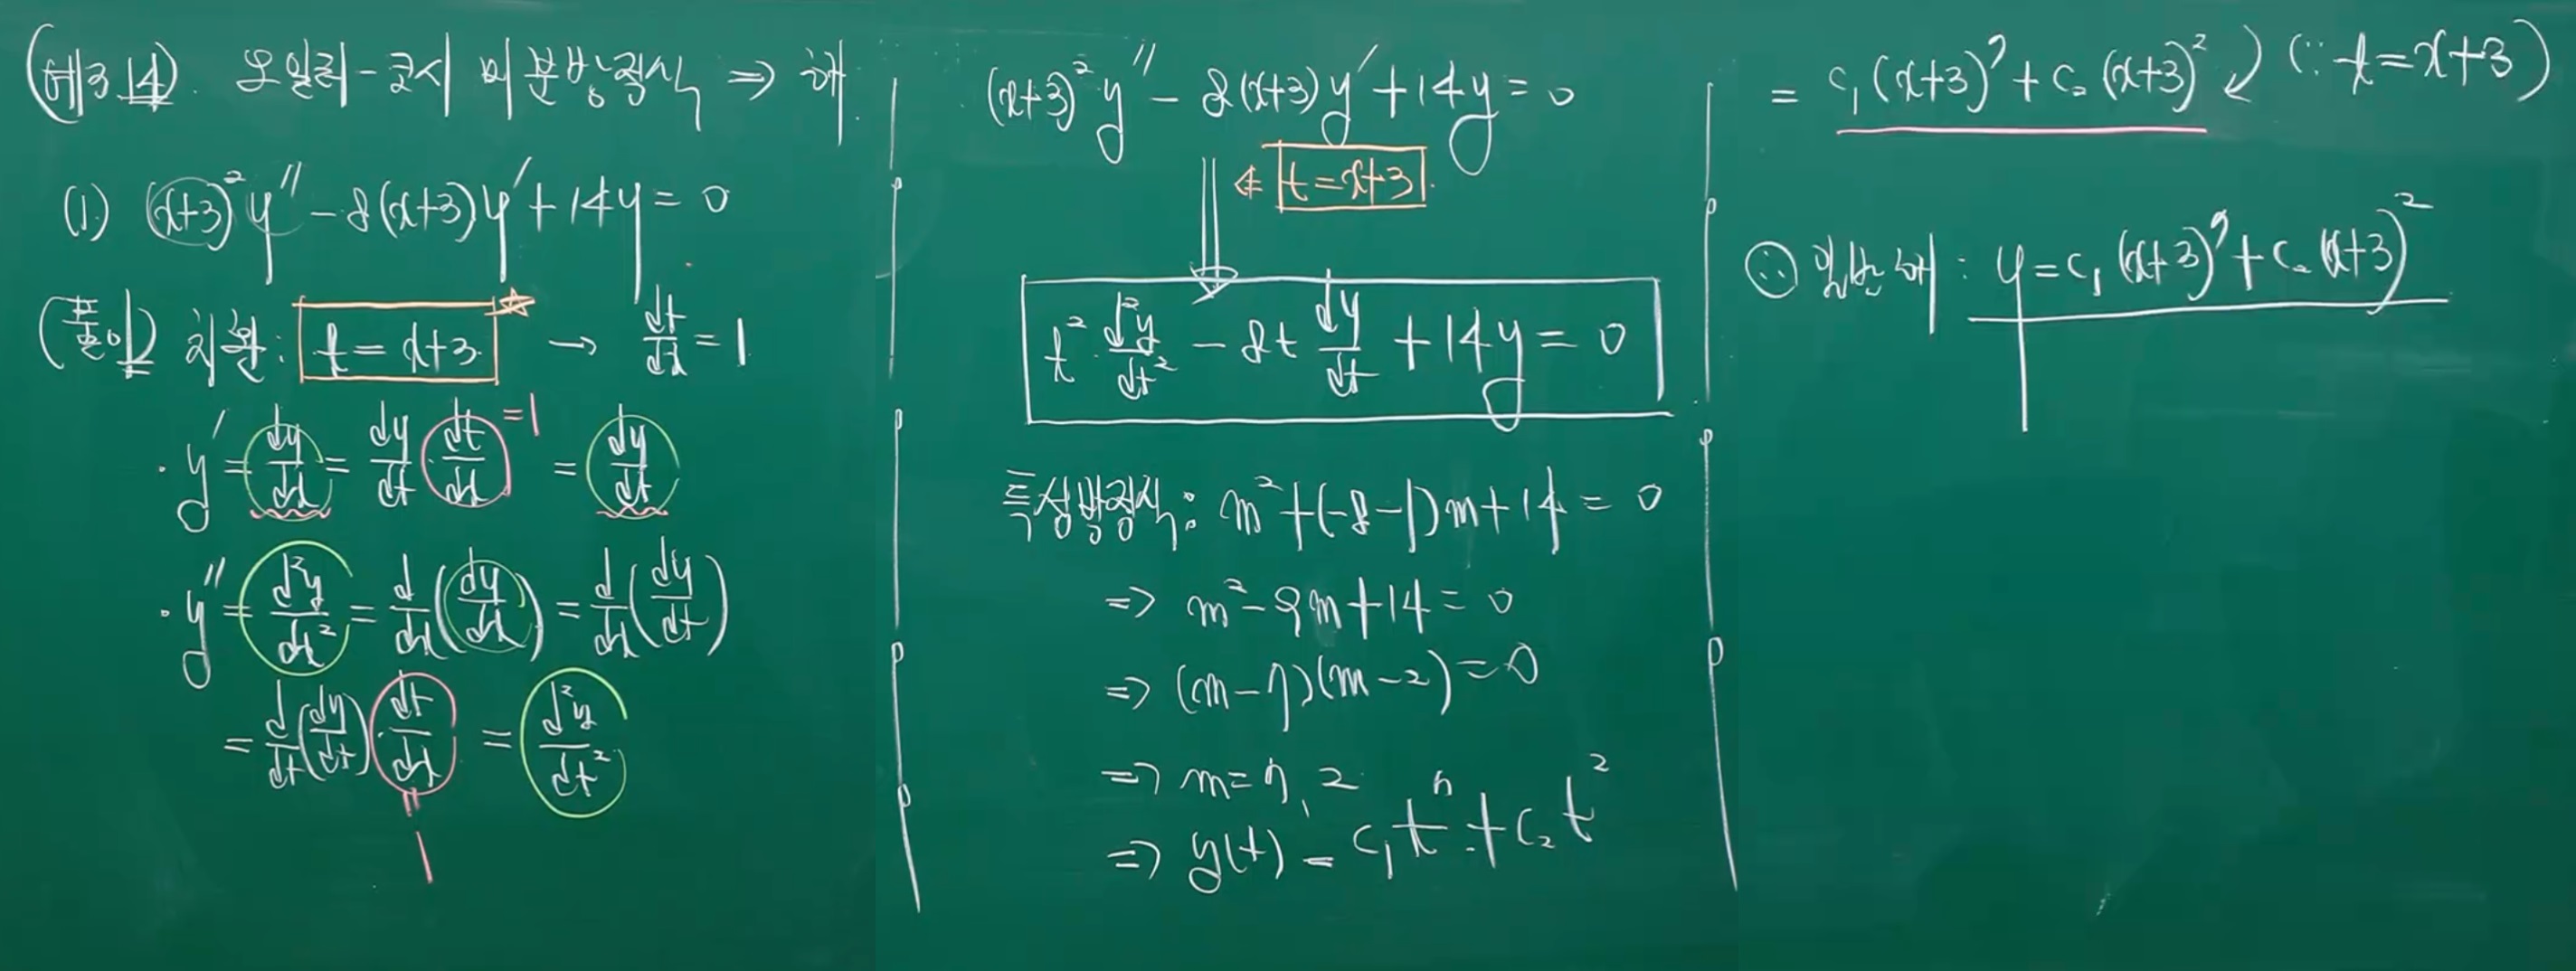 (예3.14) 오일러-코시 미분방정식 ⇒ 해.
(1) (x+3)²y″ - 8(x+3)y′ + 14y = 0
(풀이) 치환: t = x+3 ☆ → dt/dx = 1
· y′ = dy/dx = dy/dt · dt/dx =1 = dy/dt
· y″ = d²y/dx² = d/dx(dy/dx) = d/dx(dy/dt)
= d/dt(dy/dt) · dt/dx = d²y/dt²
॥
1
(x+3)²y″ - 8(x+3)y′ + 14y = 0
⇐ t = x+3
t² · d²y/dt² - 8t dy/dt + 14y = 0
특성방정식: m² + (-8-1)m + 14 = 0
⇒ m² - 9m + 14 = 0
⇒ (m-7)(m-2) = 0
⇒ m = 7, 2
⇒ y(t) = c₁t⁷ + c₂t²
= c₁(x+3)⁷ + c₂(x+3)² ↙ (∵ t = x+3)
∴ 일반해: y = c₁(x+3)⁷ + c₂(x+3)²